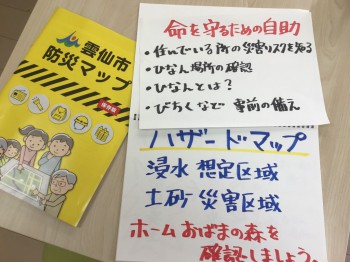 雲仙市
防災マップ
保存版
命を守るための自助
・住んでいる所の災害リスクを知る
・ひなん場所の確認
・ひなんとは？
・びちくなど 事前の備え
ハザードマップ
浸水 想定区域
土砂 災害区域
ホーム おばまの森を
確認しましょう。